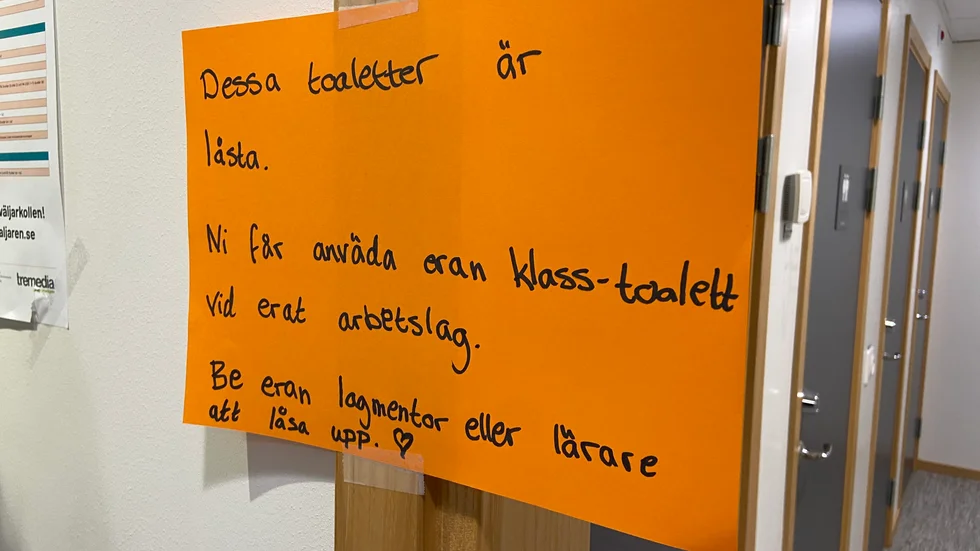 Dessa toaletter är
låsta.
Ni får anväda eran klass-toalett
vid erat arbetslag.
Be eran lagmentor eller lärare
att låsa upp. ♡
väljarkollen!
aljaren.se
tremedia